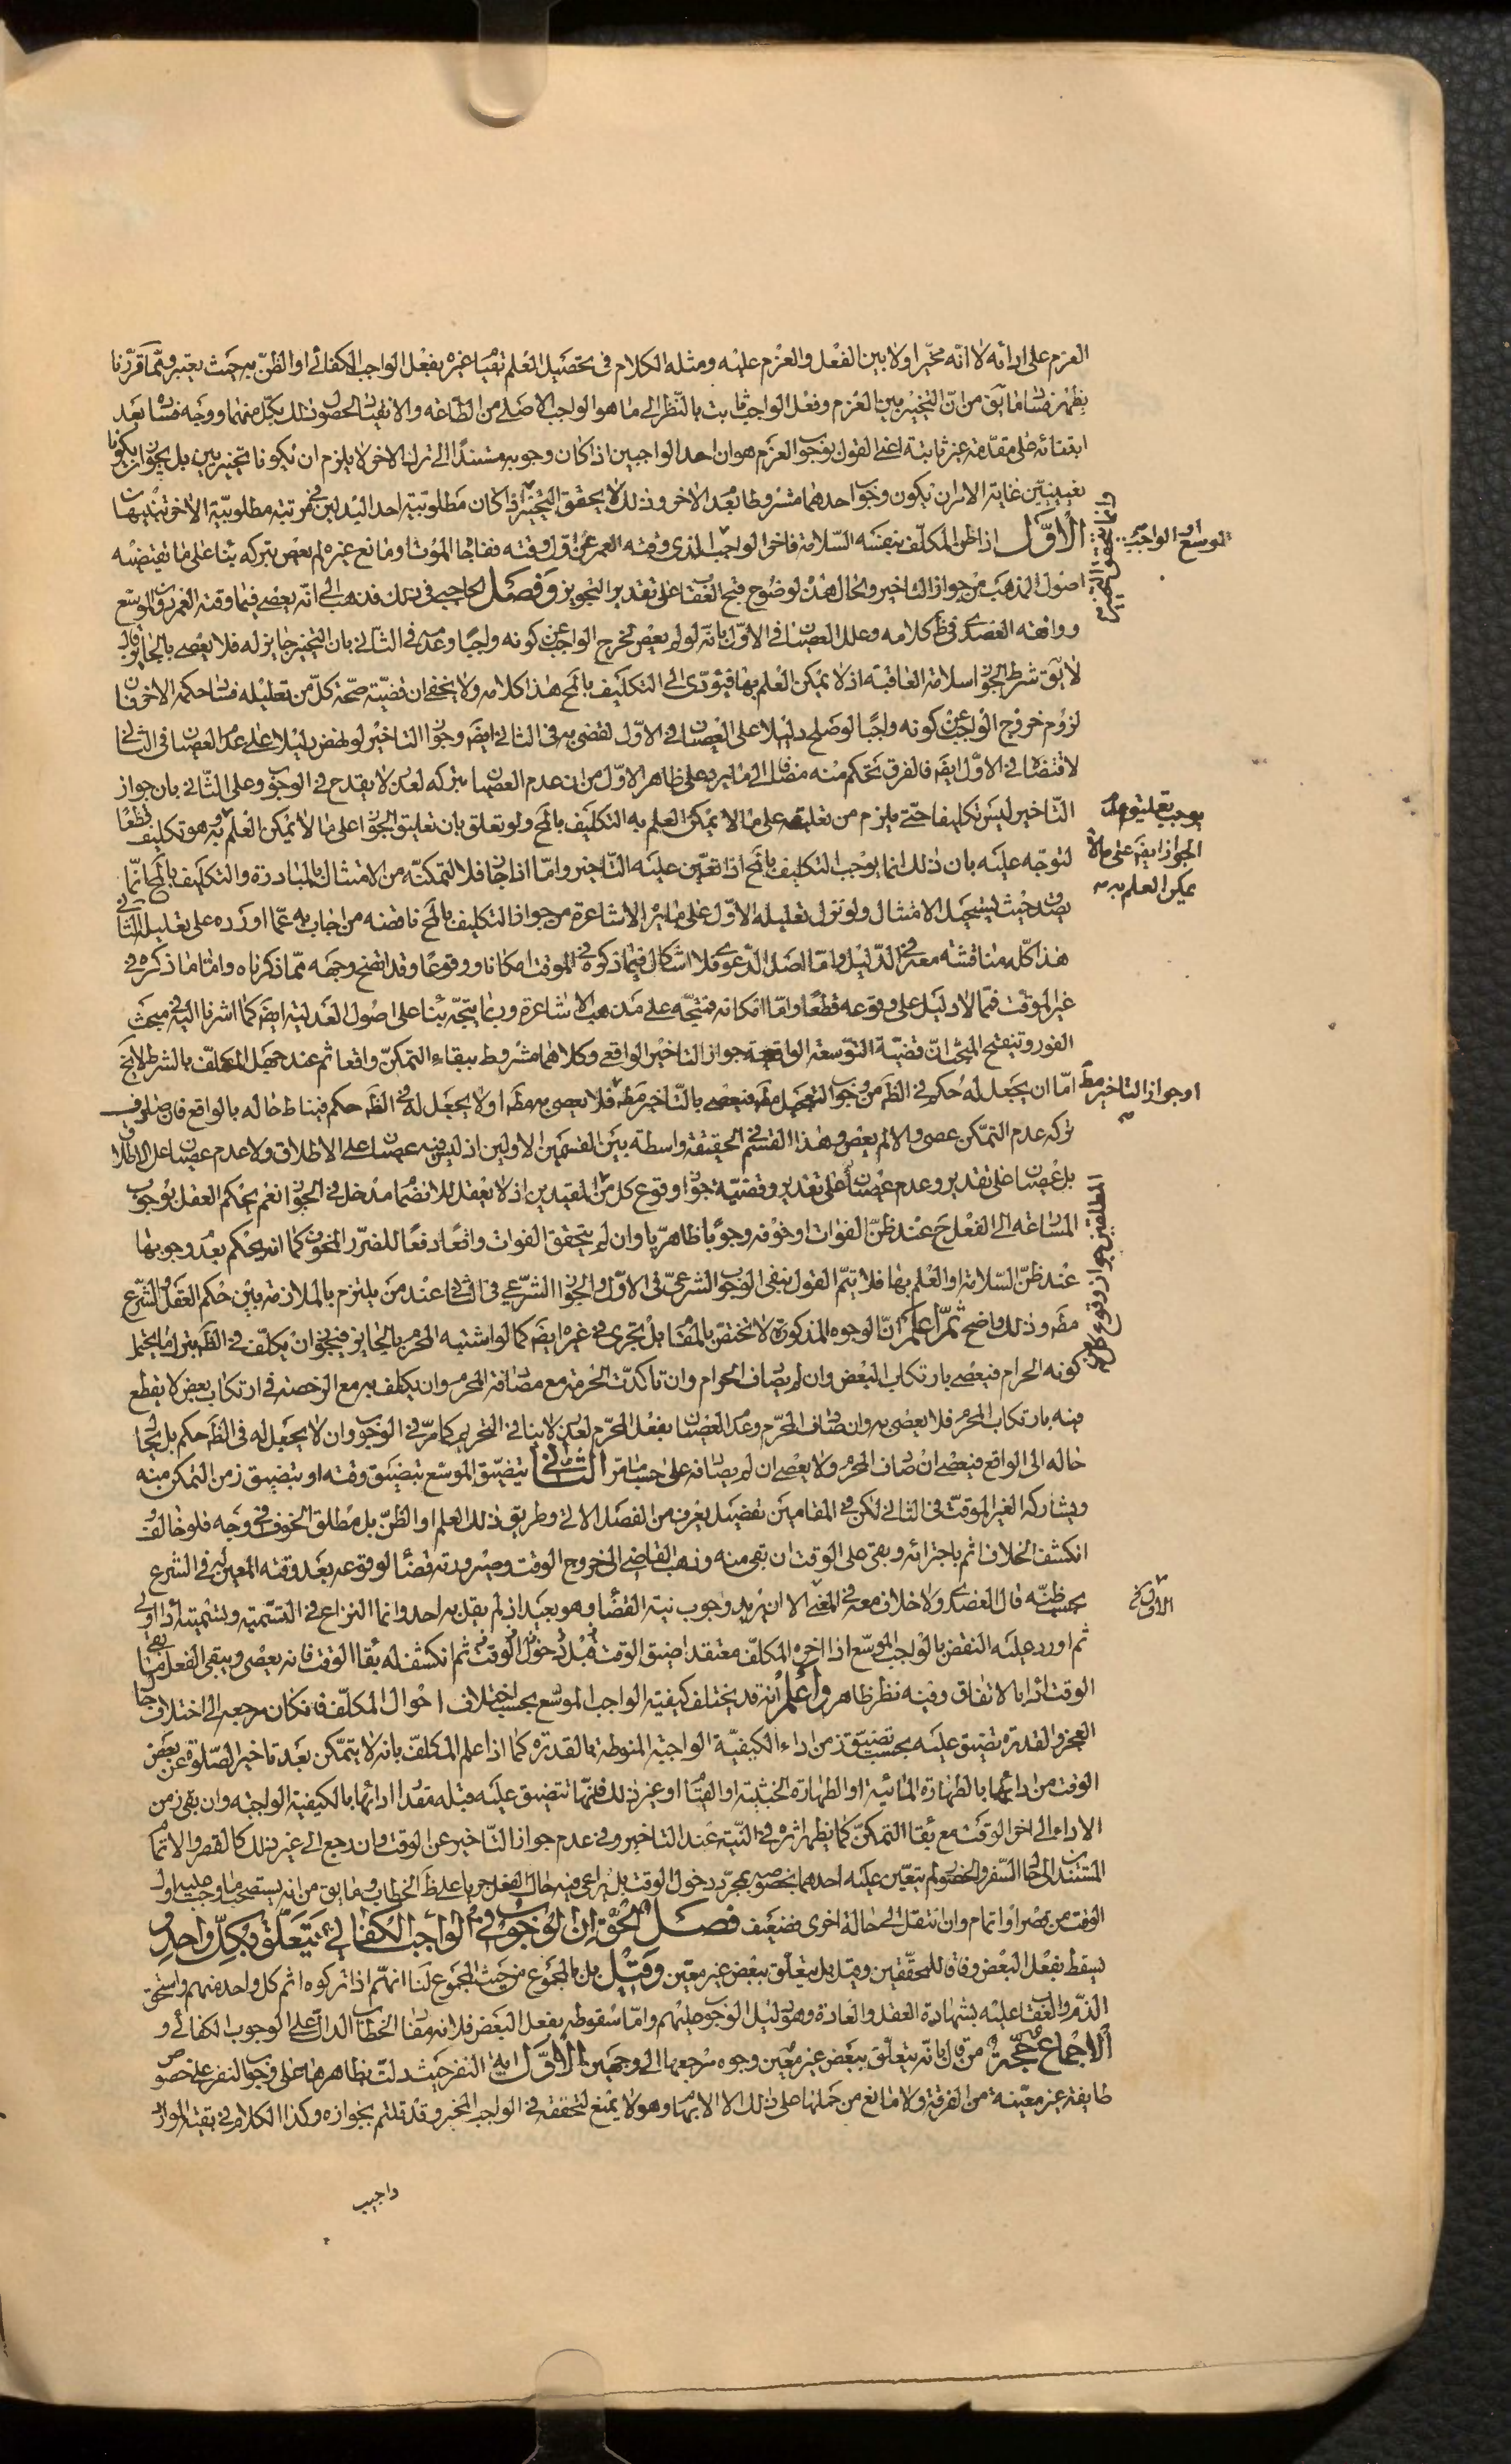 العزم على ادائه لا انه مخير اولا بين الفعل والعزم عليه ومثله الكلام فى تحصيل العلم بقيام غيره بفعل الواجب الكفائى او الظن به حيث يعتبر ومما قررنا
يظهر فساد ما يق من ان التخيير بين العزم وفعل الواجب ثابت بالنظر الى ما هو الواجب الاصلى من الطاعة والانقياد لحصول ذلك بكل منهما ووجه فساده بعد
ابتنائه على مقدمة غير ثابتة اعنى القول بوجوب العزم هو ان احد الواجبين اذا كان وجوبه مستندا الى ترك الاخر لا يلزم ان يكونا تخييريين بل يجوز ان يكونا
تعيينيين غاية الامران يكون وجوب احدهما مشروطا بعدم الاخر وذلك لا يحقق التخيير اذا كان مطلوبية احد البدلين فى مرتبة مطلوبية الاخر تنبيهات
الاول اذا ظن المكلف بنفسه السلامة فاخر الواجب الذى وقته العمر عن اول وقته ففاجأه الموت او مانع غيره لم يعص بتركه بناء على ما تقتضيه
اصول المذهب من جواز التاخير والحال هذه لوضوح قبح العقاب على تقدير التجويز وفصل الحاجبى فى ذلك فذهب الى انه يعصى فيما وقته العمر دون الموسع
ووافقه العضدى فى ظ كلامه وعلل العصيان فى الاول بانه لو لم يعص لخرج الواجب عن كونه واجبا وعدمه فى الثانى بان التخيير جايز له فلا يعصى بالجايز قال
لا يق شرط الجواز سلامة العاقبة اذ لا يمكن العلم بها فيؤدى الى التكليف بالمح هذا كلامه ولا يخفى ان قضية صحة كل من تعليله فساد حكمه الاخر فان
لزوم خروج الواجب عن كونه واجبا لو صلح دليلا على العصيان فى الاول لقضى به فى الثانى ايضا وجواز التاخير لو نهض دليلا على عدم العصيان فى الثانى
لاقتضاه فى الاول ايضا فالفرق تحكم منه مضافا الى ما يرد على ظاهر الاول من ان عدم العصيان بتركه لعذر لا يقدح فى الوجوب وعلى الثانى بان جواز
التاخير ليس تكليفا حتى يلزم من تعليقه على ما لا يمكن العلم به التكليف بالمح ولو تعلق بان تعليق الجواز على ما لا يمكن العلم به هو تكليف قطعا
لتوجه عليه بان ذلك انما يوجب التكليف بالمح اذا تعين عليه التاخير واما اذا جاز فلا لتمكنه من الامتثال بالمبادرة والتكليف بالمح انما
يصدق حيث يستحيل الامتثال ولو نزل تعليله الاول على ما يراه الاشاعرة من جواز التكليف بالمح ناقضه من اجاب به عما اورده على تعليل الثانى
هذا كله مناقشة معه فى الدليل واما اصل الدعوى فلا اشكال فيما ذكره فى الموقت امكانا ووقوعا وقد اتضح وجهه مما ذكرناه واما ما ذكره فى
غير الموقت فمما لا دليل على وقوعه قطعا واما امكانه فمتجه على مذهب الاشاعرة وربما يتجه بناء على اصول العدلية ايضا كما اشرنا اليه فى مبحث
الفور وتنقيح المبحث ان قضية التوسعة الواقعية جواز التاخير الواقعى وكلاهما مشروط ببقاء التمكن واقعا ثم عند جهل المكلف بالشرط لا يخ
اما ان يجعل له حكم فى الظ من وجوب التعجيل مط فيعصى بالتاخير مط فلا يعصى به مط او لا يجعل له فى الظ حكم فيناط حاله بالواقع فان صادف
تركه عدم التمكن عصى والا لم يعص وهذا القسم فى الحقيقة واسطة بين القسمين الاولين اذ ليس فيه عصيان على الاطلاق ولا عدم عصيان على الاطلاق
بل عصيان على تقدير وعدم عصيان على تقدير وقضية جواز وقوع كل من المقيدين اذ لا يعقل للانضمام مدخل فى الجواز نعم يحكم العقل بوجوب
المسارعة الى الفعل ح عند ظن الفوات او خوفه وجوبا ظاهريا وان لم يتحقق الفوات واقعا دفعا للضرر المخوف كما انه يحكم بعدم وجوبها
عند ظن السلامة او العلم بها فلا يتم القول بنفى الوجوب الشرعى فى الاول والجواز الشرعى فى الثانى عند من يلتزم بالملازمة بين حكم العقل والشرع
مط وذلك واضح ثم اعلم ان الوجوه المذكورة لا تختص بالمقام بل تجرى فى غيره ايضا كما لو اشتبه المحرم بالجايز فيجوز ان يكلف فى الظ بترك ما يحتمل
كونه الحرام فيعصى بارتكاب البعض وان لم يصادف الحرام وان تاكدت الحرمة مع مصادفة المحرم وان يكلف به مع الرخصة فى ارتكاب بعض لا يقطع
فيه بارتكاب المحرم فلا يعصى به وان صادف المحرم وعدم العصيان بفعل المحرم لعذر لا ينافى التحريم كما مر فى الوجوب وان لا يجعل له فى الظ حكم بل يحال
حاله الى الواقع فيعصى ان صادف المحرم ولا يعصى ان لم يصادفه على حسب ما مر الثانى يتضيق الموسع بتضيق وقته او بتضيق زمن التمكن منه
ويشاركه الغير الموقت فى الثانى لكن فى المقامين تفصيل يعرف من الفصل الاتى وطريق ذلك العلم او الظن بل مطلق الخوف فى وجه فلو خالف
انكشف الخلاف اثم باجترائه وبقى على الوقت ان بقى منه وذهب القاضى الى خروج الوقت وصيرورته قضاء لوقوعه بعد وقته المعين له فى الشرع
بحسب ظنه قال العضدى ولا خلاف معه فى المعنى الا ان يريد وجوب نية القضاء وهو بعيد اذ لم يقل به احد وانما النزاع فى التسمية وتسميته اداء اولى
ثم اورد عليه النقض بالواجب الموسع اذا اخره المكلف معتقدا ضيق الوقت قبل دخول الوقت ثم انكشف له بقاء الوقت فانه يعصى ويبقى الفعل فى
الوقت اداء بالاتفاق وفيه نظر ظاهر واعلم انه قد يختلف كيفية الواجب الموسع بحسب اختلاف احوال المكلف فان كان مرجعه الى اختلاف حال
العجز والقدرة تضيق عليه بحسب تضيق زمن اداء الكيفية الواجبة المنوطة بالقدرة كما اذا علم المكلف بانه لا يتمكن بعد تاخير الصلوة عن بعض
الوقت من ادائها بالطهارة المائية او الطهارة الخبثية او القيام او غير ذلك فانها تتضيق عليه قبله مقدار ادائها بالكيفية الواجبة وان بقى زمن
الاداء الى اخر الوقت مع بقاء التمكن كما يظهر اثره فى النية عند التاخير وفى عدم جواز التاخير عن الوقت وان رجع الى غير ذلك كالقصر والاتمام
المستندين الى حال السفر والحضر لم يتعين عليه احدهما بخصوصه بمجرد دخول الوقت بل يراعى فيه حال الفعل جريا على ظ الخطاب وما يق من انه يستصحب ما وجب عليه اول
الوقت من قصر او اتمام وان انتقل الى حالة اخرى فضعيف فصل الحق ان الوجوب فى الواجب الكفائى يتعلق بكل واحد و
يسقط بفعل البعض وفاقا للمحققين وقيل بل يتعلق ببعض غير معين وقيل بل بالمجموع من حيث المجموع لنا انهم اذا تركوه اثم كل واحد منهم واستحق
الذم والعقاب عليه بشهادة العقل والعادة وهو دليل الوجوب عليهم واما سقوطه بفعل البعض فلانه مفاد الخطاب الدال على الوجوب الكفائى و
الاجماع حجة من قال بانه يتعلق ببعض غير معين وجوه مرجعها الى وجهين الاول اية النفر حيث دلت بظاهرها على وجوب النفر على خصوص
طايفة غير معينة من الفرقة ولا مانع من حملها على ذلك الا الابهام وهو لا يمنع لتحققه فى الواجب المخير وقد قلتم بجوازه وكذا الكلام فى بقية الموارد
الموسع او الواجب
يوجب تعليق هذا
الجواز ايضا على ما لا
يمكن العلم به
او جواز التاخير مط
المطلقين جواز وقوع كل
واجيب